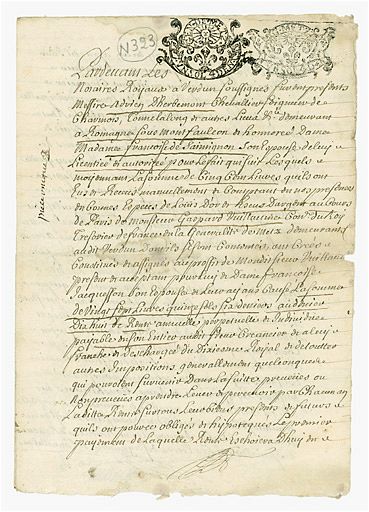 N323
Pardevant Les
Notaires Roiaux a Verdun soussignés furent presents
Messire Adrien Dherbemont Chevallier seigneur de
Charmois, Connelalong et autres Lieux demeurant
a Romagne sous Montfaulcon et honorée Dame
Madame Francoise de Saintignon son Epouse de luy
Licentiée et autorisée pour L'effet qui suit Lesquels
moyennant La somme de Cinq Cens Livres quils ont
Eus et Receus manuellement et Comptant en nos presences
en bonnes Especes de Louis D'or et d'Ecus d'argent au Cours
de Paris de Monsieur Gaspard Con.er du Roy
Tresorier de france en La Generallité de Metz demeurant
audit Verdun Dont ils se sont Contentés, ont Créés
Constitués et assignés au proffit de Mondit sieur
present et acceptant pour Luy et Dame francoise
Jacquesson son Epouse et Leurs ayans Cause La somme
de Vingt sept Livres quinze sols six deniers au denier
Dix huit de Rente annuelle, perpetuelle et
payable en son Entier audit sieur Creancier et a
franche et Deschargée du Dixiesme Royal et de toutes
autres Impositions generallement quelconques
qui pouroient survenir Dans La suitte preveües ou
Non preveües a prendre Lever et percevoir par Chacun an
Ladite Rente sur tous Leurs biens presents et futurs
quils ont pour ce obligés et hypotequés Le premier
payement de Laquelle Rente Eschoiera D'huy en